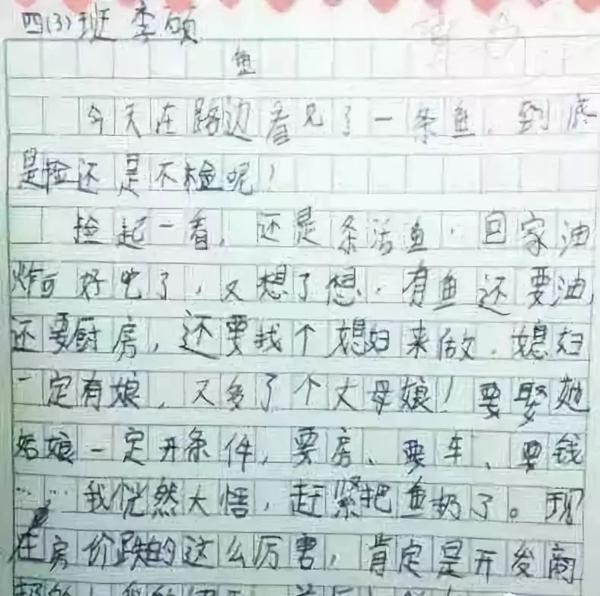 四(3)班 李硕
鱼
今天在路边看见了一条鱼，到底
是捡还是不捡呢！
捡起一看，还是条活鱼．回家油
炸可好吃了，又想了想．有鱼还要油，
还要厨房，还要找个媳妇来做．媳妇
一定有娘，又多了个丈母娘！要娶她
姑娘一定开条件，要房、要车、要钱
……我恍然大悟，赶紧把鱼扔了。现
在房价跌的这么厉害，肯定是开发商